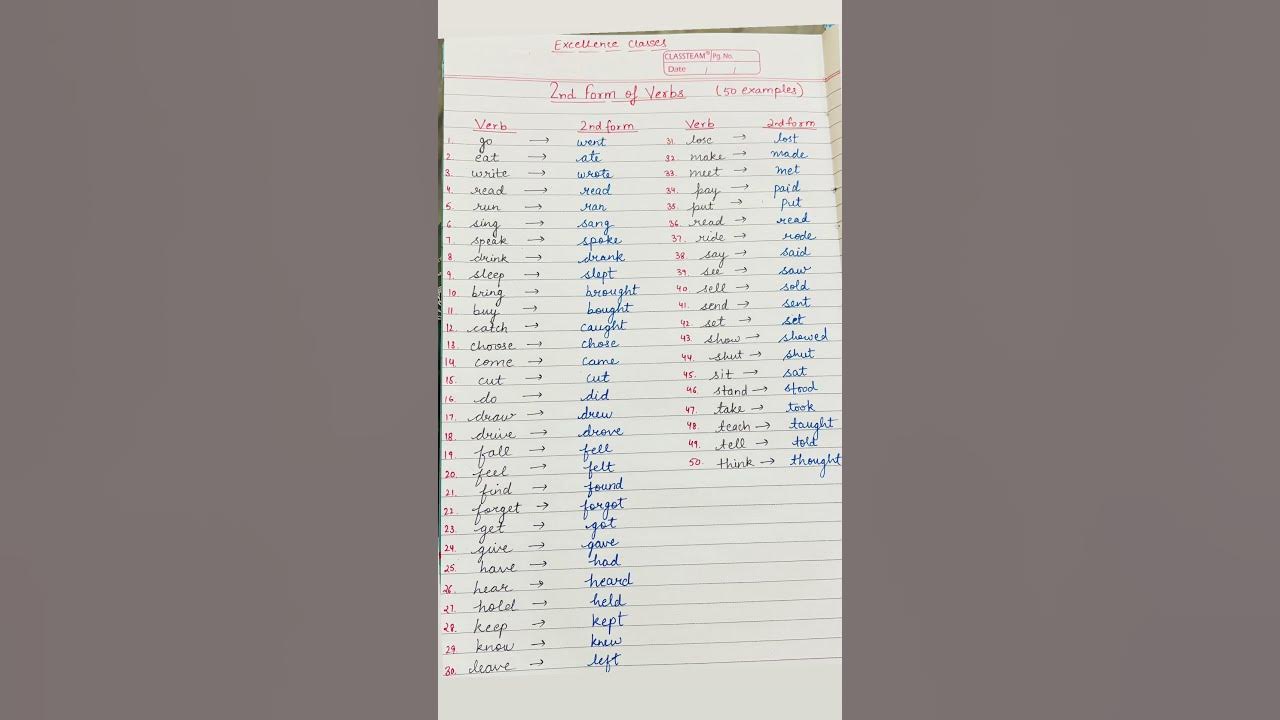 Excellence Classes
CLASSTEAM® Pg. No.
Date / /
2nd Form of Verbs (50 examples)
Verb 2nd form
1. go → went
2. eat → ate
3. write → wrote
4. read → read
5. run → ran
6. sing → sang
7. speak → spoke
8. drink → drank
9. sleep → slept
10. bring → brought
11. buy → bought
12. catch → caught
13. choose → chose
14. come → came
15. cut → cut
16. do → did
17. draw → drew
18. drive → drove
19. fall → fell
20. feel → felt
21. find → found
22. forget → forgot
23. get → got
24. give → gave
25. have → had
26. hear → heard
27. hold → held
28. keep → kept
29. know → knew
30. leave → left
Verb 2nd form
31. lose → lost
32. make → made
33. meet → met
34. pay → paid
35. put → put
36. read → read
37. ride → rode
38. say → said
39. see → saw
40. sell → sold
41. send → sent
42. set → set
43. show → showed
44. shut → shut
45. sit → sat
46. stand → stood
47. take → took
48. teach → taught
49. tell → told
50. think → thought